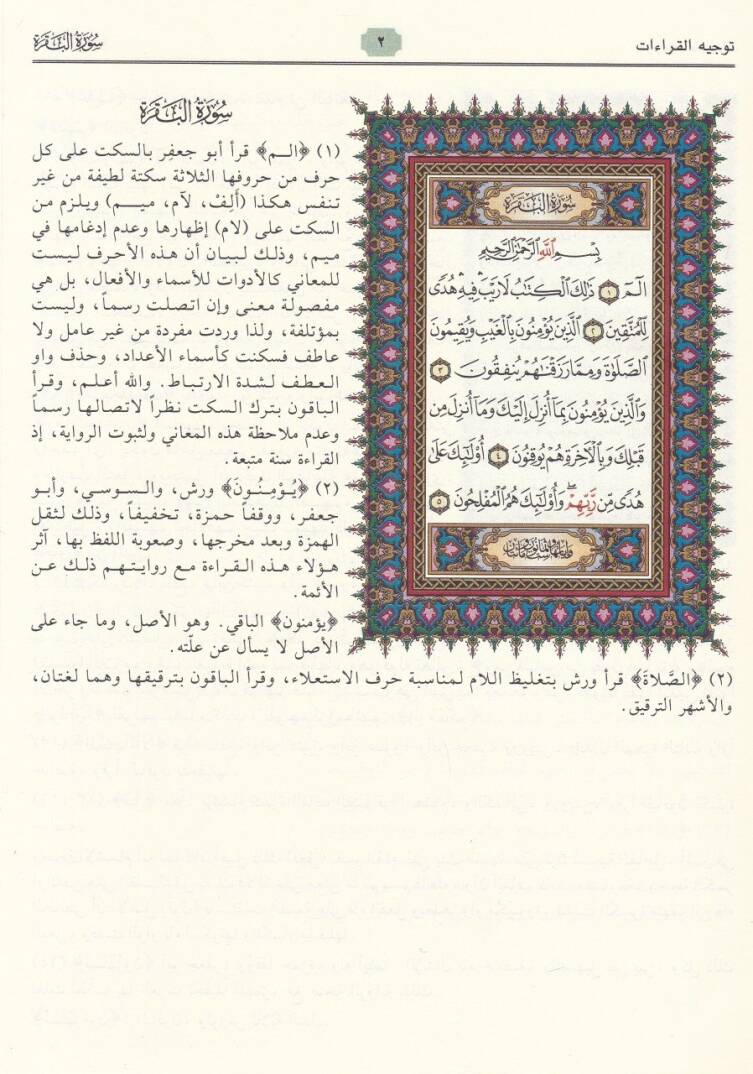 توجيه القراءات
٢
سُورَةُ البَقَرَة
سُورَةُ البَقَرَة
بِسْمِ اللَّهِ الرَّحْمَٰنِ الرَّحِيمِ
الٓمٓ ١ ذَٰلِكَ الْكِتَٰبُ لَا رَيْبَ فِيهِ هُدًى
لِّلْمُتَّقِينَ ٢ الَّذِينَ يُؤْمِنُونَ بِالْغَيْبِ وَيُقِيمُونَ
الصَّلَوٰةَ وَمِمَّا رَزَقْنَٰهُمْ يُنفِقُونَ ٣
وَالَّذِينَ يُؤْمِنُونَ بِمَا أُنزِلَ إِلَيْكَ وَمَا أُنزِلَ مِن
قَبْلِكَ وَبِالْآخِرَةِ هُمْ يُوقِنُونَ ٤ أُوْلَٰئِكَ عَلَىٰ
هُدًى مِّن رَّبِّهِمْ وَأُوْلَٰئِكَ هُمُ الْمُفْلِحُونَ ٥
سُورَةُ البَقَرَة
(١) ﴿الـم﴾ قرأ أبو جعفر بالسكت على كل
حرف من حروفها الثلاثة سكتة لطيفة من غير
تنفس هكذا (ألِفْ، لآم، ميـم) ويلزم من
السكت على (لام) إظهارها وعدم إدغامها في
ميم، وذلك لبيان أن هذه الأحرف ليست
للمعاني كالأدوات للأسماء والأفعال، بل هي
مفصولة معنى وإن اتصلت رسماً، وليست
بمؤتلفة، ولذا وردت مفردة من غير عامل ولا
عاطف فسكنت كأسماء الأعداد، وحذف واو
العطف لشدة الارتباط. والله أعلم، وقرأ
الباقون بترك السكت نظراً لاتصالها رسماً
وعدم ملاحظة هذه المعاني ولثبوت الرواية، إذ
القراءة سنة متبعة.
(٢) ﴿يُـوْمِنُـونَ﴾ ورش، والسوسي، وأبو
جعفر، ووقفاً حمزة، تخفيفاً، وذلك لثقل
الهمزة وبعد مخرجها، وصعوبة اللفظ بها، آثر
هؤلاء هذه القراءة مع روايتهم ذلك عن
الأئمة.
﴿يؤمنون﴾ الباقي. وهو الأصل، وما جاء على
الأصل لا يسأل عن علّته.
(٢) ﴿الصَّلاةَ﴾ قرأ ورش بتغليظ اللام لمناسبة حرف الاستعلاء، وقرأ الباقون بترقيقها وهما لغتان،
والأشهر الترقيق.